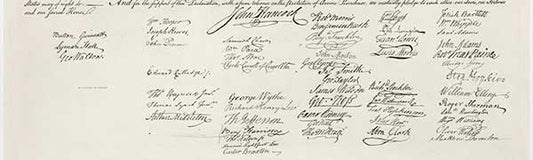 States may of right do. — And for the support of this Declaration, with a firm reliance on the Protection of divine Providence, we mutually pledge to each other our Lives, our Fortunes
and our sacred Honor.
Button Gwinnett
Lyman Hall
Geo Walton.
Wm Hooper
Joseph Hewes,
John Penn
Edward Rutledge.
Thos Heyward Junr.
Thomas Lynch Junr.
Arthur Middleton
John Hancock
Samuel Chase
Wm Paca
Thos Stone
Charles Carroll of Carrollton
George Wythe
Richard Henry Lee
Th Jefferson
Benj Harrison
Thos Nelson jr.
Francis Lightfoot Lee
Carter Braxton
Robt Morris
Benjamin Rush
Benj Franklin
John Morton
Geo Clymer
Jas Smith
Geo Taylor
James Wilson
Geo Ross
Caesar Rodney
Geo Read
Tho M:Kean
Wm Floyd
Phil Livingston
Frans Lewis
Lewis Morris
Richd Stockton
Jno Witherspoon
Fras Hopkinson
John Hart
Abra Clark
Josiah Bartlett
Wm Whipple
Saml Adams
John Adams
Robt Treat Paine
Elbridge Gerry
Step Hopkins
William Ellery
Roger Sherman
Sam Huntington
Wm Williams
Oliver Wolcott
Matthew Thornton